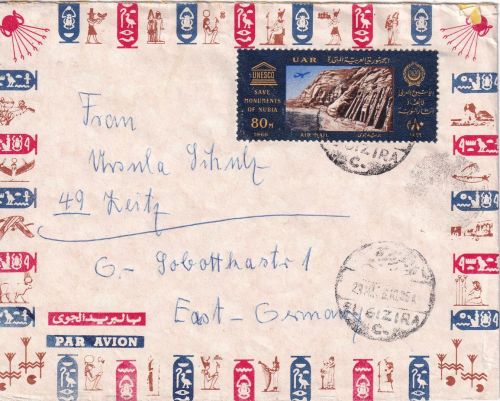 UAR الجمهورية العربية المتحدة
UNESCO
SAVE
MONUMENTS
OF NUBIA
80 M
1966
AIR MAIL
Frau
Ursula Schulz
49 Zeitz
G.- Sobottkastr 1
East-Germany
بالبريد الجوى
PAR AVION
EL GIZIRA
C.
EL GIZIRA
C.